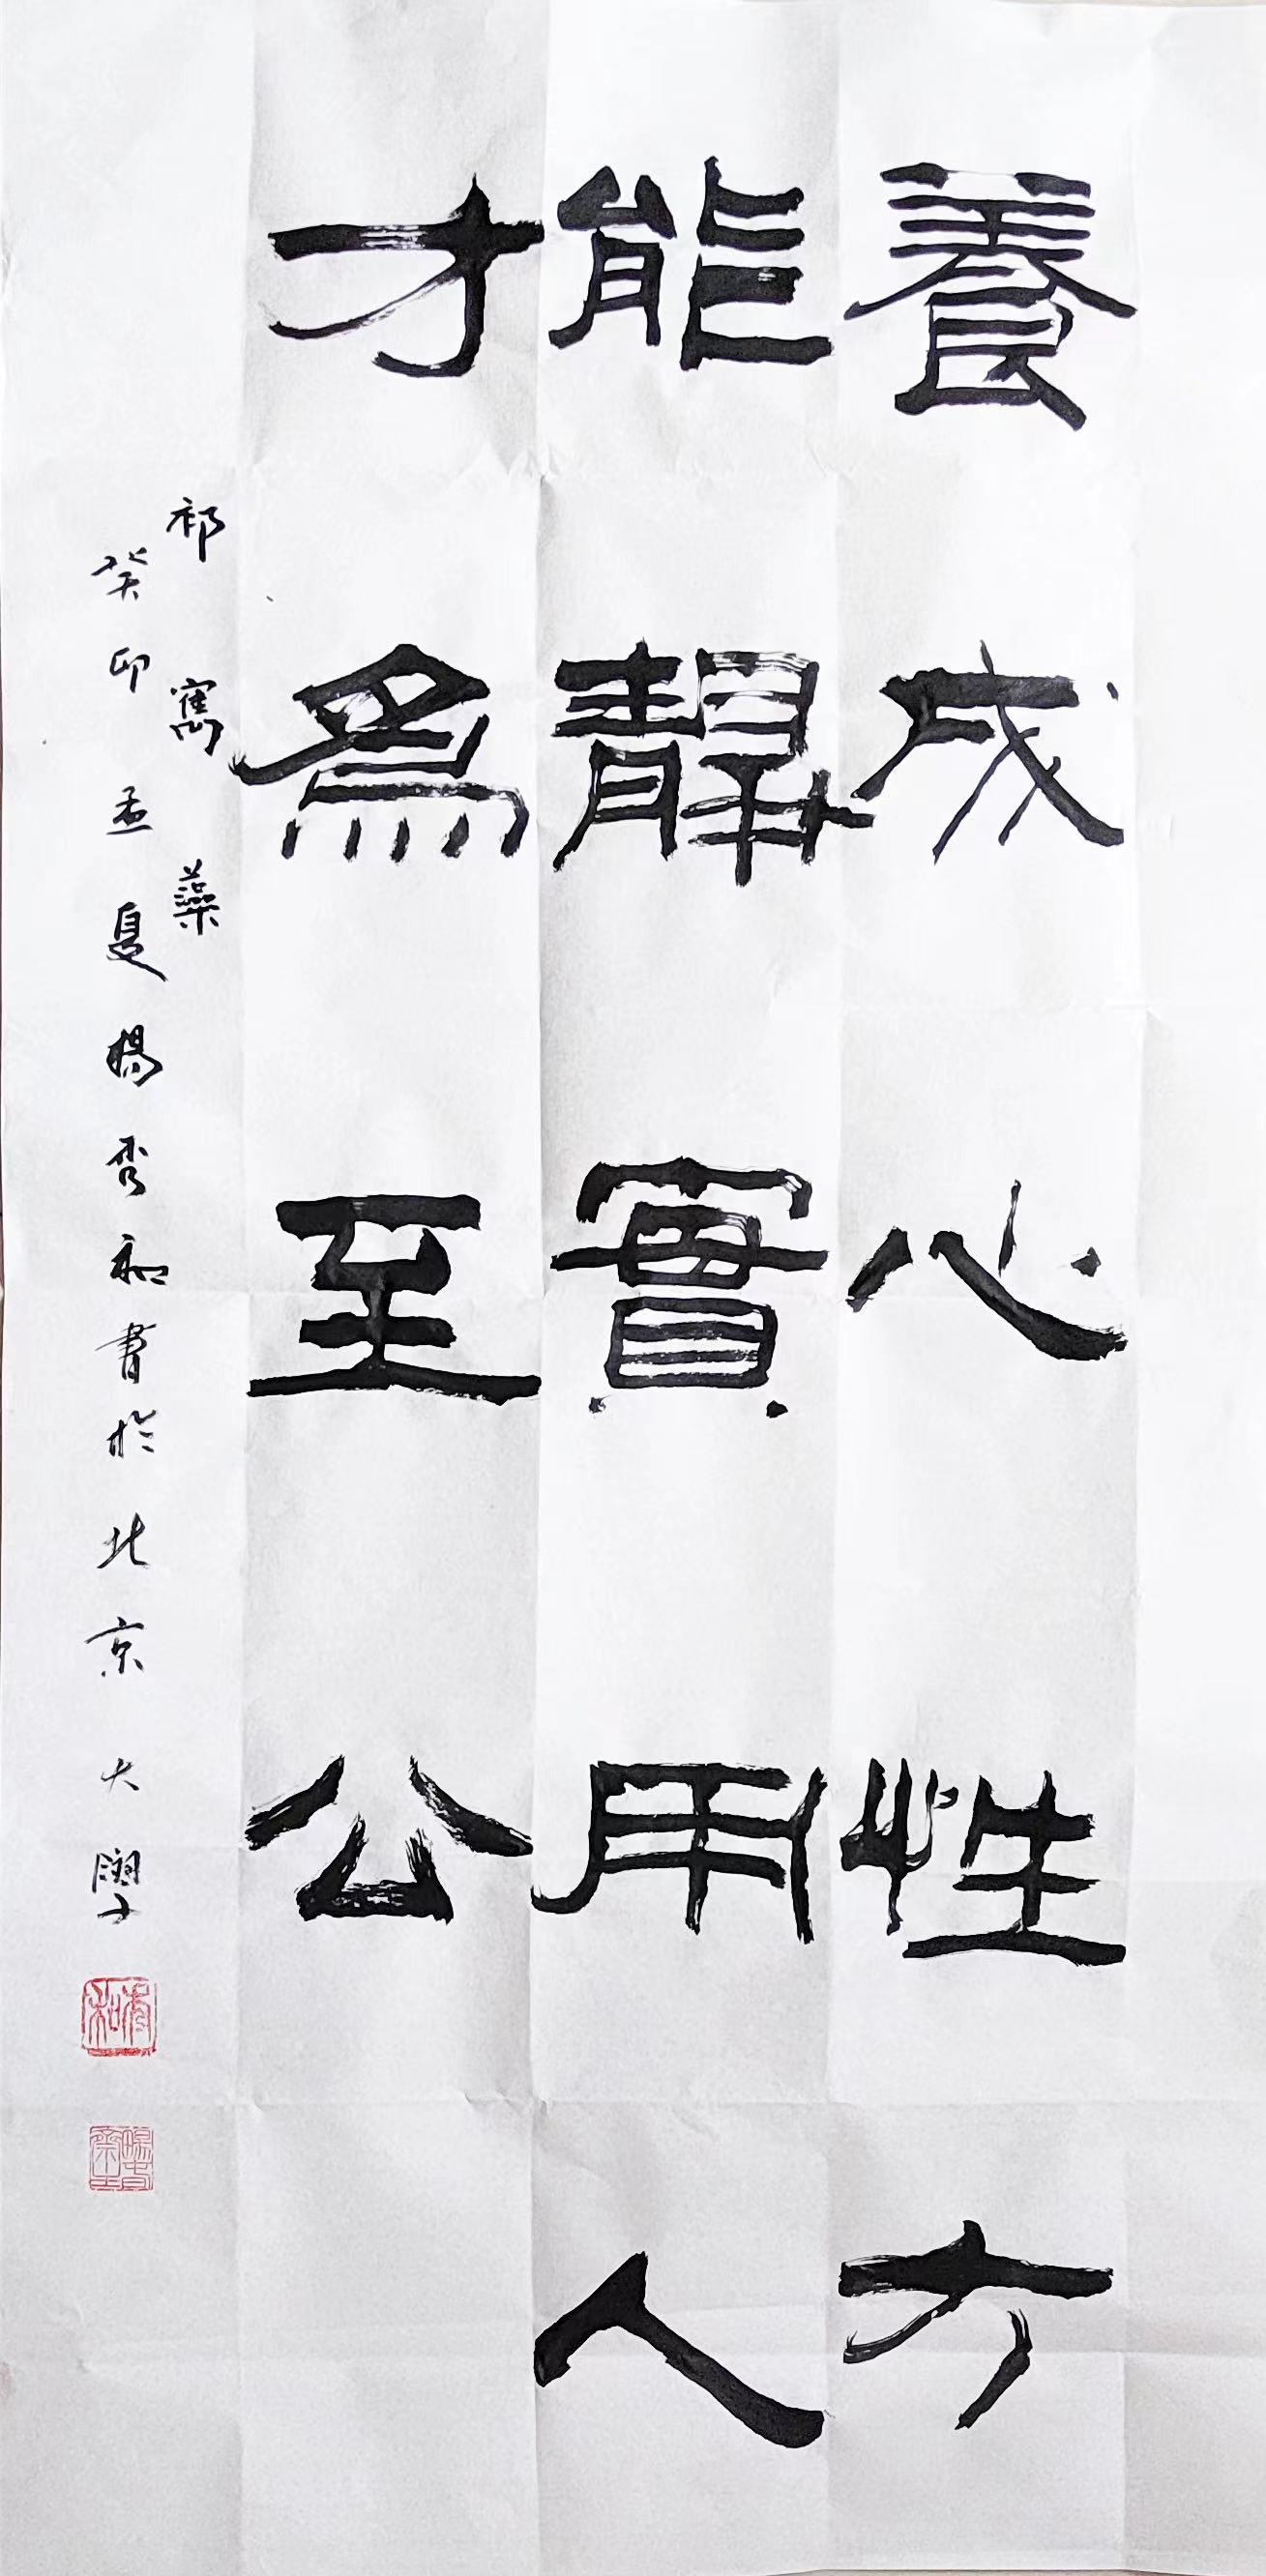 養成心性方
能靜實用人
才為至公
祁寯藻
癸卯孟夏楊秀和書於北京大學
秀和